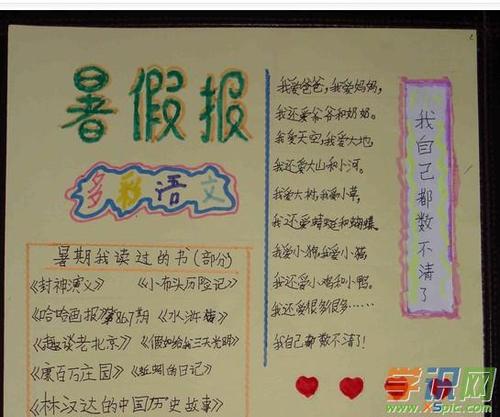 暑假报
多彩语文
暑期我读过的书(部分)
《封神演义》 《小布头历险记》
《哈哈画报》第867期 《水浒传》
《趣谈老北京》 《假如给我三天光明》
《康百万庄园》 《蚯蚓的日记》
《林汉达的中国历史故事》
我爱爸爸,我爱妈妈,
我还爱爷爷和奶奶。
我爱天空,我爱大地,
我还爱大山和小河。
我爱大树,我爱小草,
我还爱蜻蜓和蝴蝶。
我爱小狗,我爱小猫,
我还爱小鸡和小鸭。
我还爱很多很多……
我自己都数不清了!
我自己都数不清了
学识网
www.xspic.com